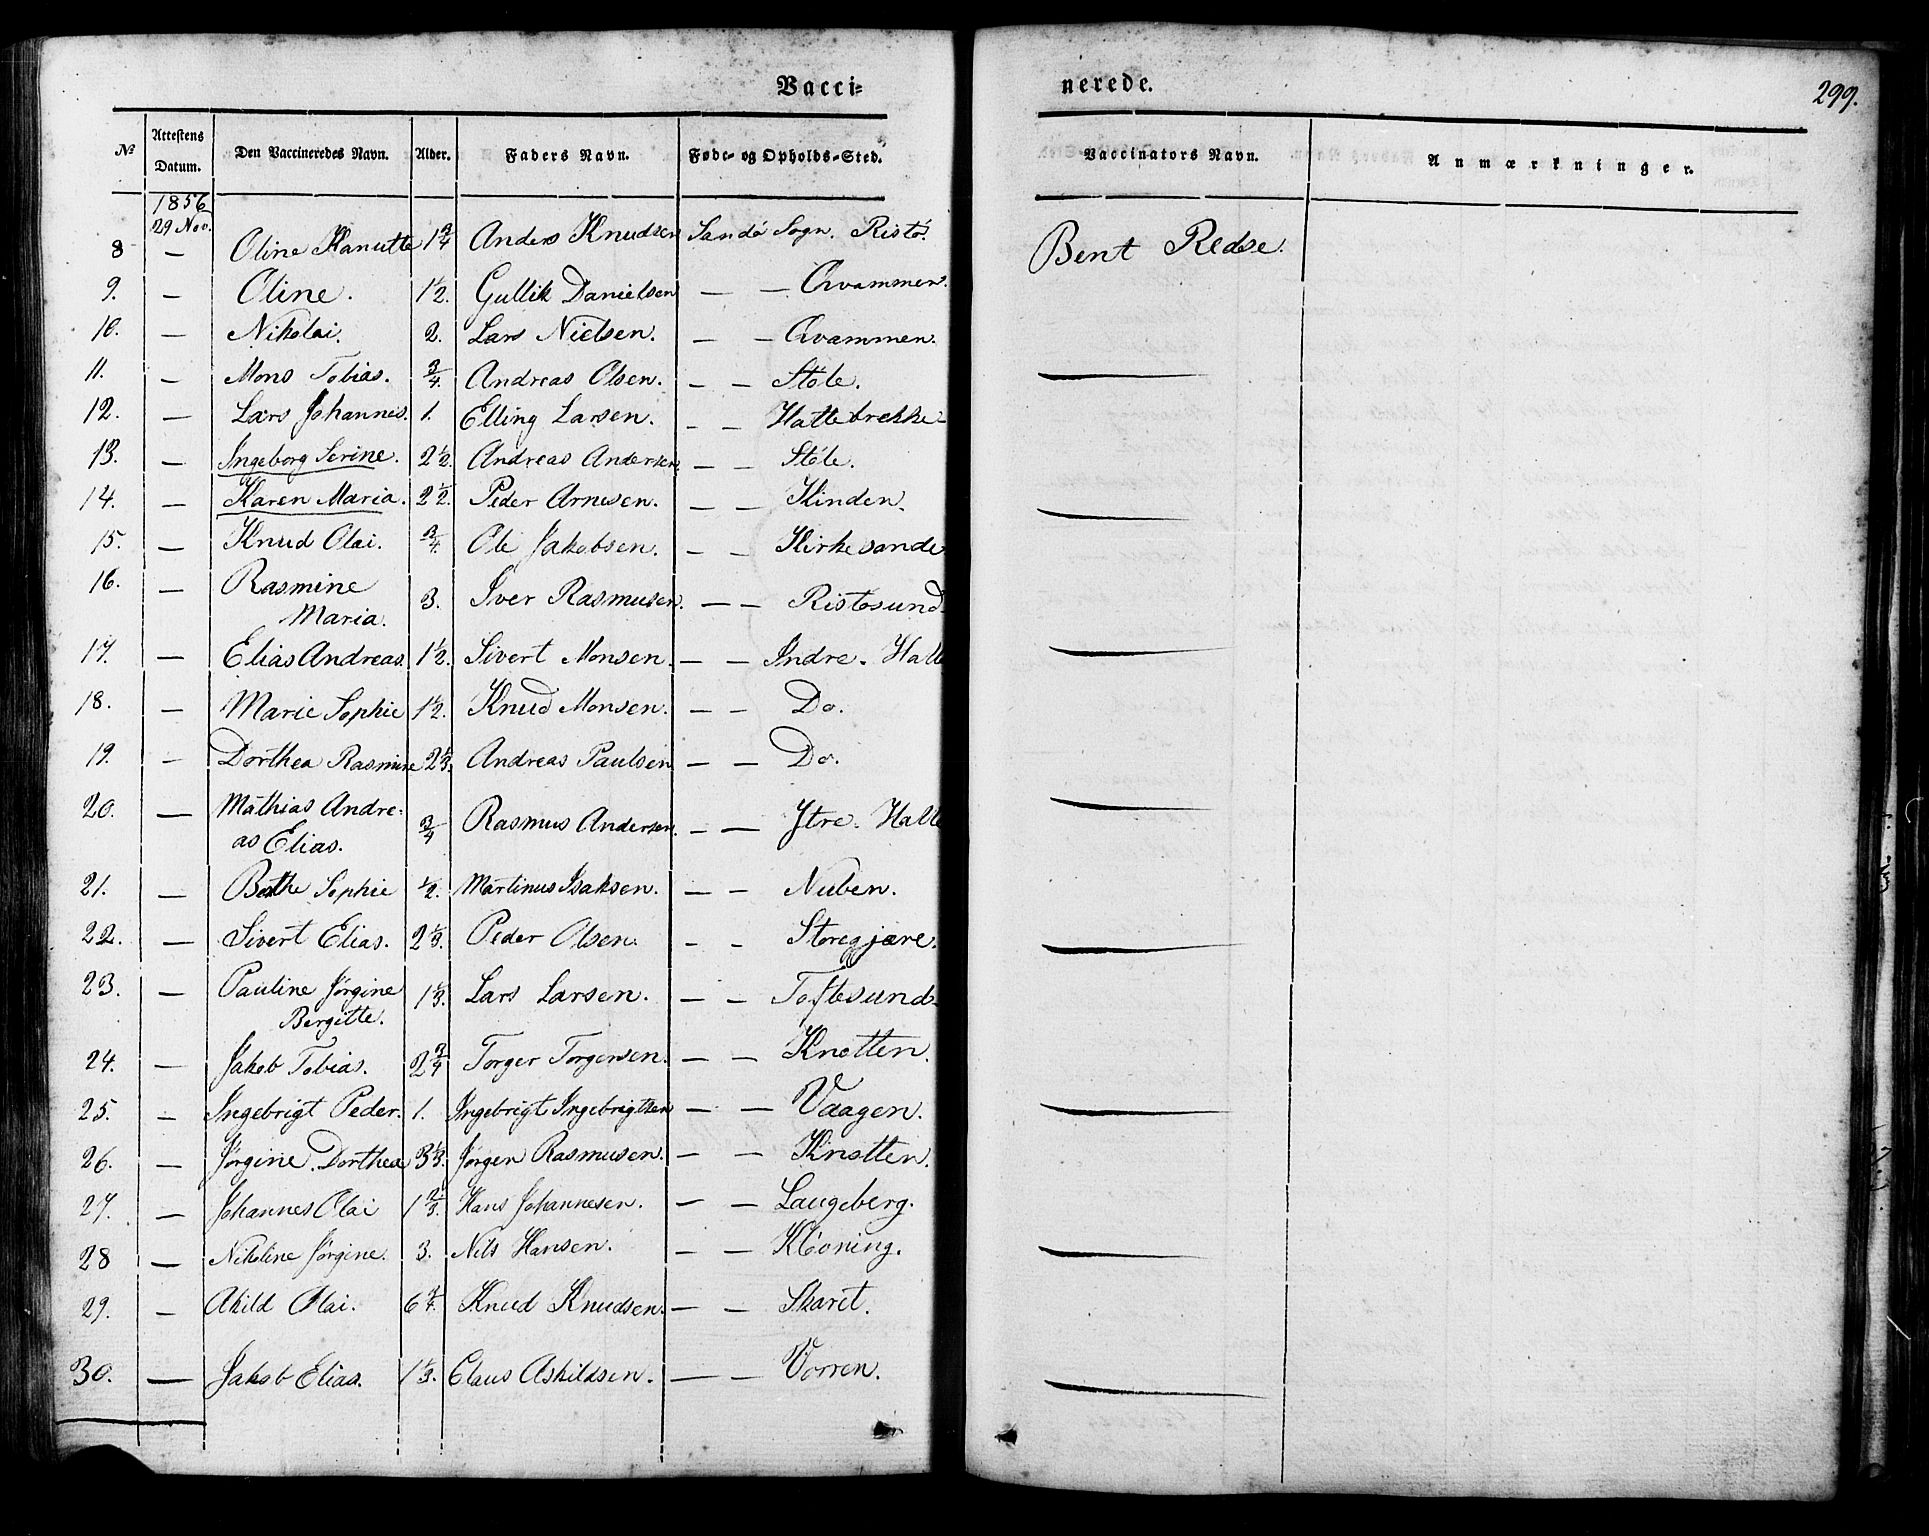 Vacci-
nerede.
299.
№ Attestens Datum. Den Vaccineredes Navn. Alder. Faders Navn. Føde- og Opholds-Sted. Vaccinators Navn. Anmærkninger.
1856
29 Nov.
8 — Oline Kanutte 1 3/4 Anders Knudsen Sandø Sogn. Ristø. Bent Redse.
9. — Oline. 1 1/2. Gullik Danielsen — — Qvammen.
10. — Nikolai. 2. Lars Nielsen. — — Qvammen.
11. — Mons Tobias. 3/4. Andreas Olsen. — — Støle.
12. — Lars Johannes. 1. Elling Larsen. — — Hattebrekke
13. — Ingeborg Serine. 2 1/2. Andreas Andersen. — — Støle.
14. — Karen Maria. 2 1/2. Peder Arnesen. — — Kinden.
15. — Knud Olai. 3/4. Ole Jakobsen. — — Kirkesande
16. — Rasmine
Maria. 3. Iver Rasmusen. — — Ristøsund
17. — Elias Andreas. 1 1/2. Sivert Monsen. — — Indre. Hatle
18. — Marie Sophie 1 1/2. Knud Monsen. — — Do.
19. — Dorthea Rasmine 2 1/3. Andreas Paulsen — — Do.
20. — Mathias Andre-
as Elias. 3/4 Rasmus Andersen. — — Ytre. Hatle
21. — Bathe Sophie 1/2. Martinus Isaksen. — — Nuben.
22. — Sivert Elias. 2 1/3. Peder Olsen. — — Storegjære.
23. — Pauline Jørgine
Bergitte. 1 1/3. Lars Larsen. — — Toftesund
24. — Jakob Tobias. 2 3/4 Torger Torgersen. — — Knotten.
25. — Ingebrigt Peder. 1. Ingebrigt Ingebrigtsen — — Vaagen.
26. — Jørgine Dorthea 3 1/3. Jørgen Rasmusen. — — Knotten.
27. — Johannes Olai 1 2/3. Hans Johannesen. — — Laugeberg.
28 — Nikoline Jørgine. 3. Nils Hansen. — — Kløvning.
29. — Akild Olai. 6 1/4. Knud Knudsen. — — Skaret.
30. — Jakob Elias. 1 1/3. Claus Askildsen. — — Vorren.